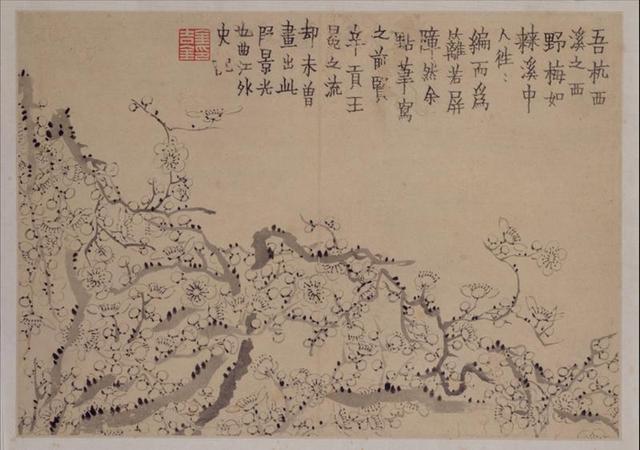 吾杭西
溪之西
野梅如
棘溪中
人往〻
編而爲
籬若屏
障然余
點筆寫
之前賢
辛貢王
冕之流
却未曾
畫出此
段景光
也曲江外
史記